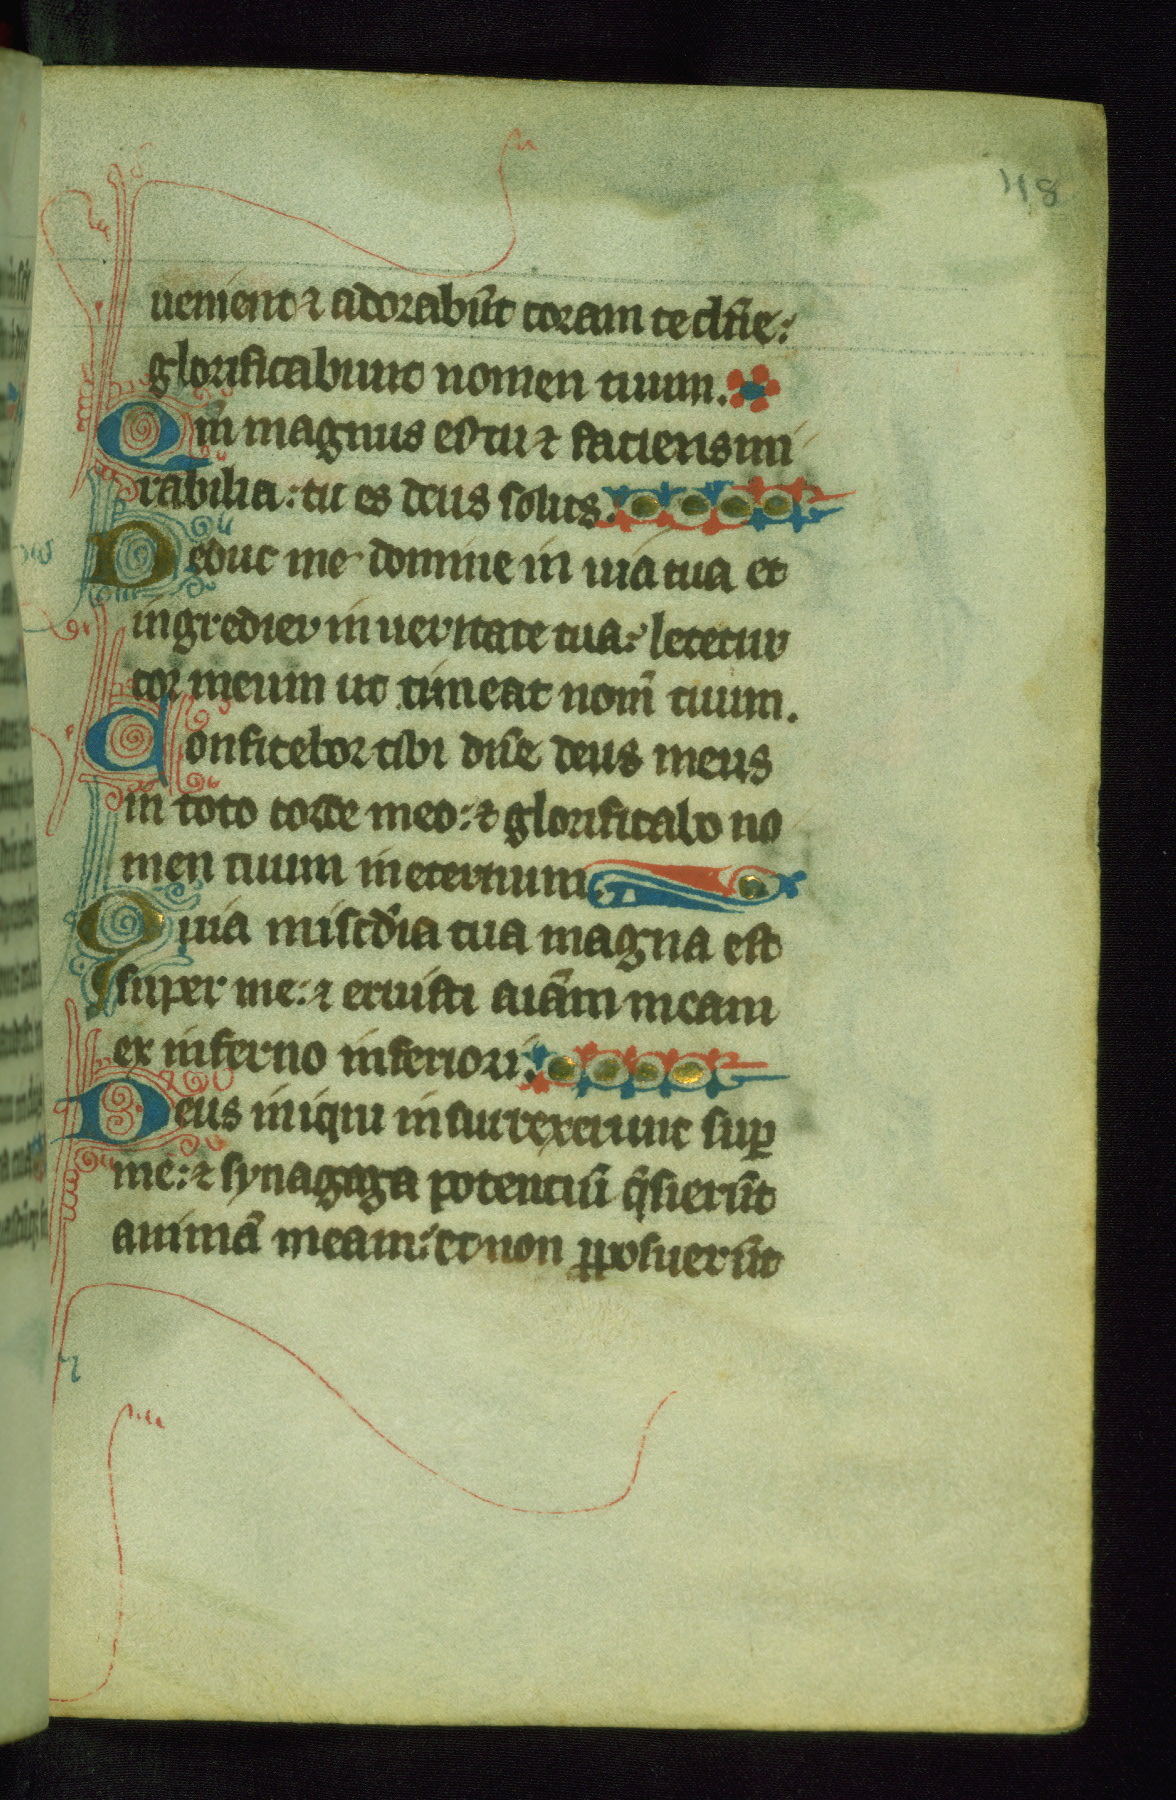 118
uenient ⁊ adorabūt coram te dn̄e:
glorificabunt nomen tuum.
Qm̄ magnus es tu ⁊ faciens mi
rabilia: tu es deus solus.
Deduc me domine in uia tua et
ingrediar in ueritate tua: letetur
cor meum ut timeat nom̄ tuum.
Confitebor tibi dn̄e deus meus
in toto corde meo: ⁊ glorificabo no
men tuum in eternum.
Quia misc̄dia tua magna est
super me: ⁊ eruisti aīam meam
ex inferno inferiori.
Deus iniqui insurrexerunt sup̄
me: ⁊ synagoga potenciū q̄sierūt
animā meam: et non ꝓposuerūt